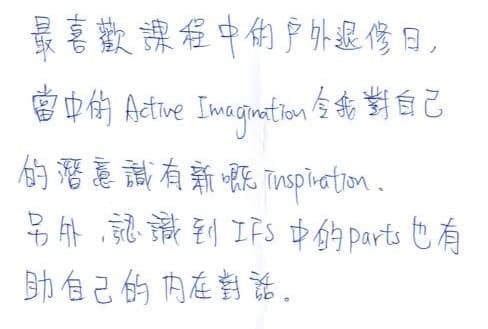 最喜歡課程中的戶外退修日,
當中的 Active Imagination 令我對自己
的潛意識有新嘅 inspiration、
另外,認識到 IFS 中的 parts 也有
助自己的內在對話。